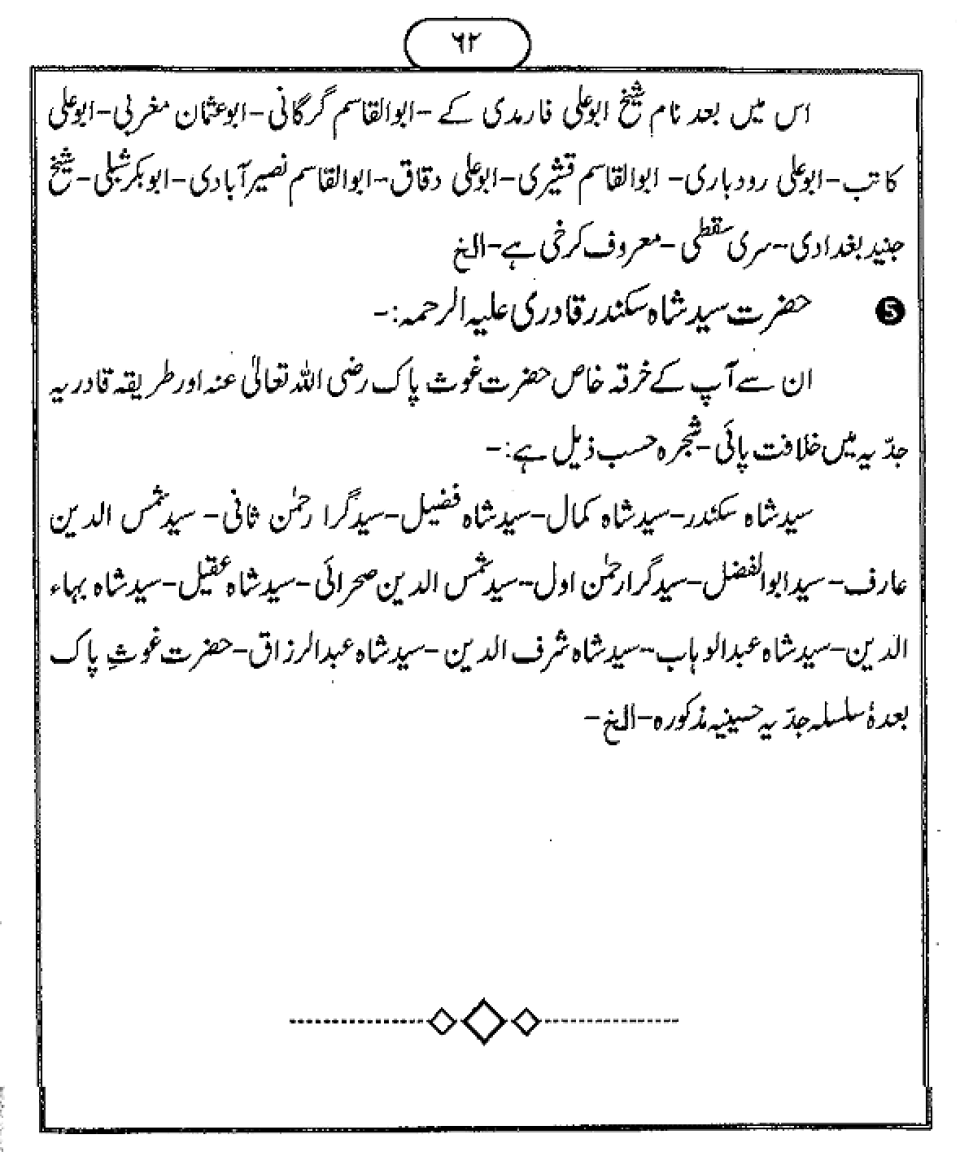 ۶۲
اس میں بعد نام شیخ ابوعلی فارمدی کے -ابوالقاسم گرگانی-ابوعثمان مغربی-ابوعلی
کاتب-ابوعلی رودباری- ابوالقاسم قشیری-ابوعلی دقاق-ابوالقاسم نصیرآبادی-ابوبکر شبلی-شیخ
جنید بغدادی-سری سقطی -معروف کرخی ہے-الخ
❺ حضرت سید شاہ سکندر قادری علیہ الرحمہ:-
ان سے آپ کے خرقہ خاص حضرت غوث پاک رضی اللہ تعالیٰ عنہ اور طریقہ قادریہ
جدّیہ میں خلافت پائی-شجرہ حسب ذیل ہے:-
سید شاہ سکندر-سید شاہ کمال-سید شاہ فضیل-سید گرا رحمٰن ثانی- سید شمس الدین
عارف-سید ابوالفضل-سید گرارحمٰن اول-سید شمس الدین صحرائی-سید شاہ عقیل-سید شاہ بہاء
الدین-سید شاہ عبدالوہاب-سید شاہ شرف الدین -سید شاہ عبدالرزاق-حضرت غوثِ پاک
بعدۂ سلسلہ جدّیہ حسینیہ مذکورہ-الخ-